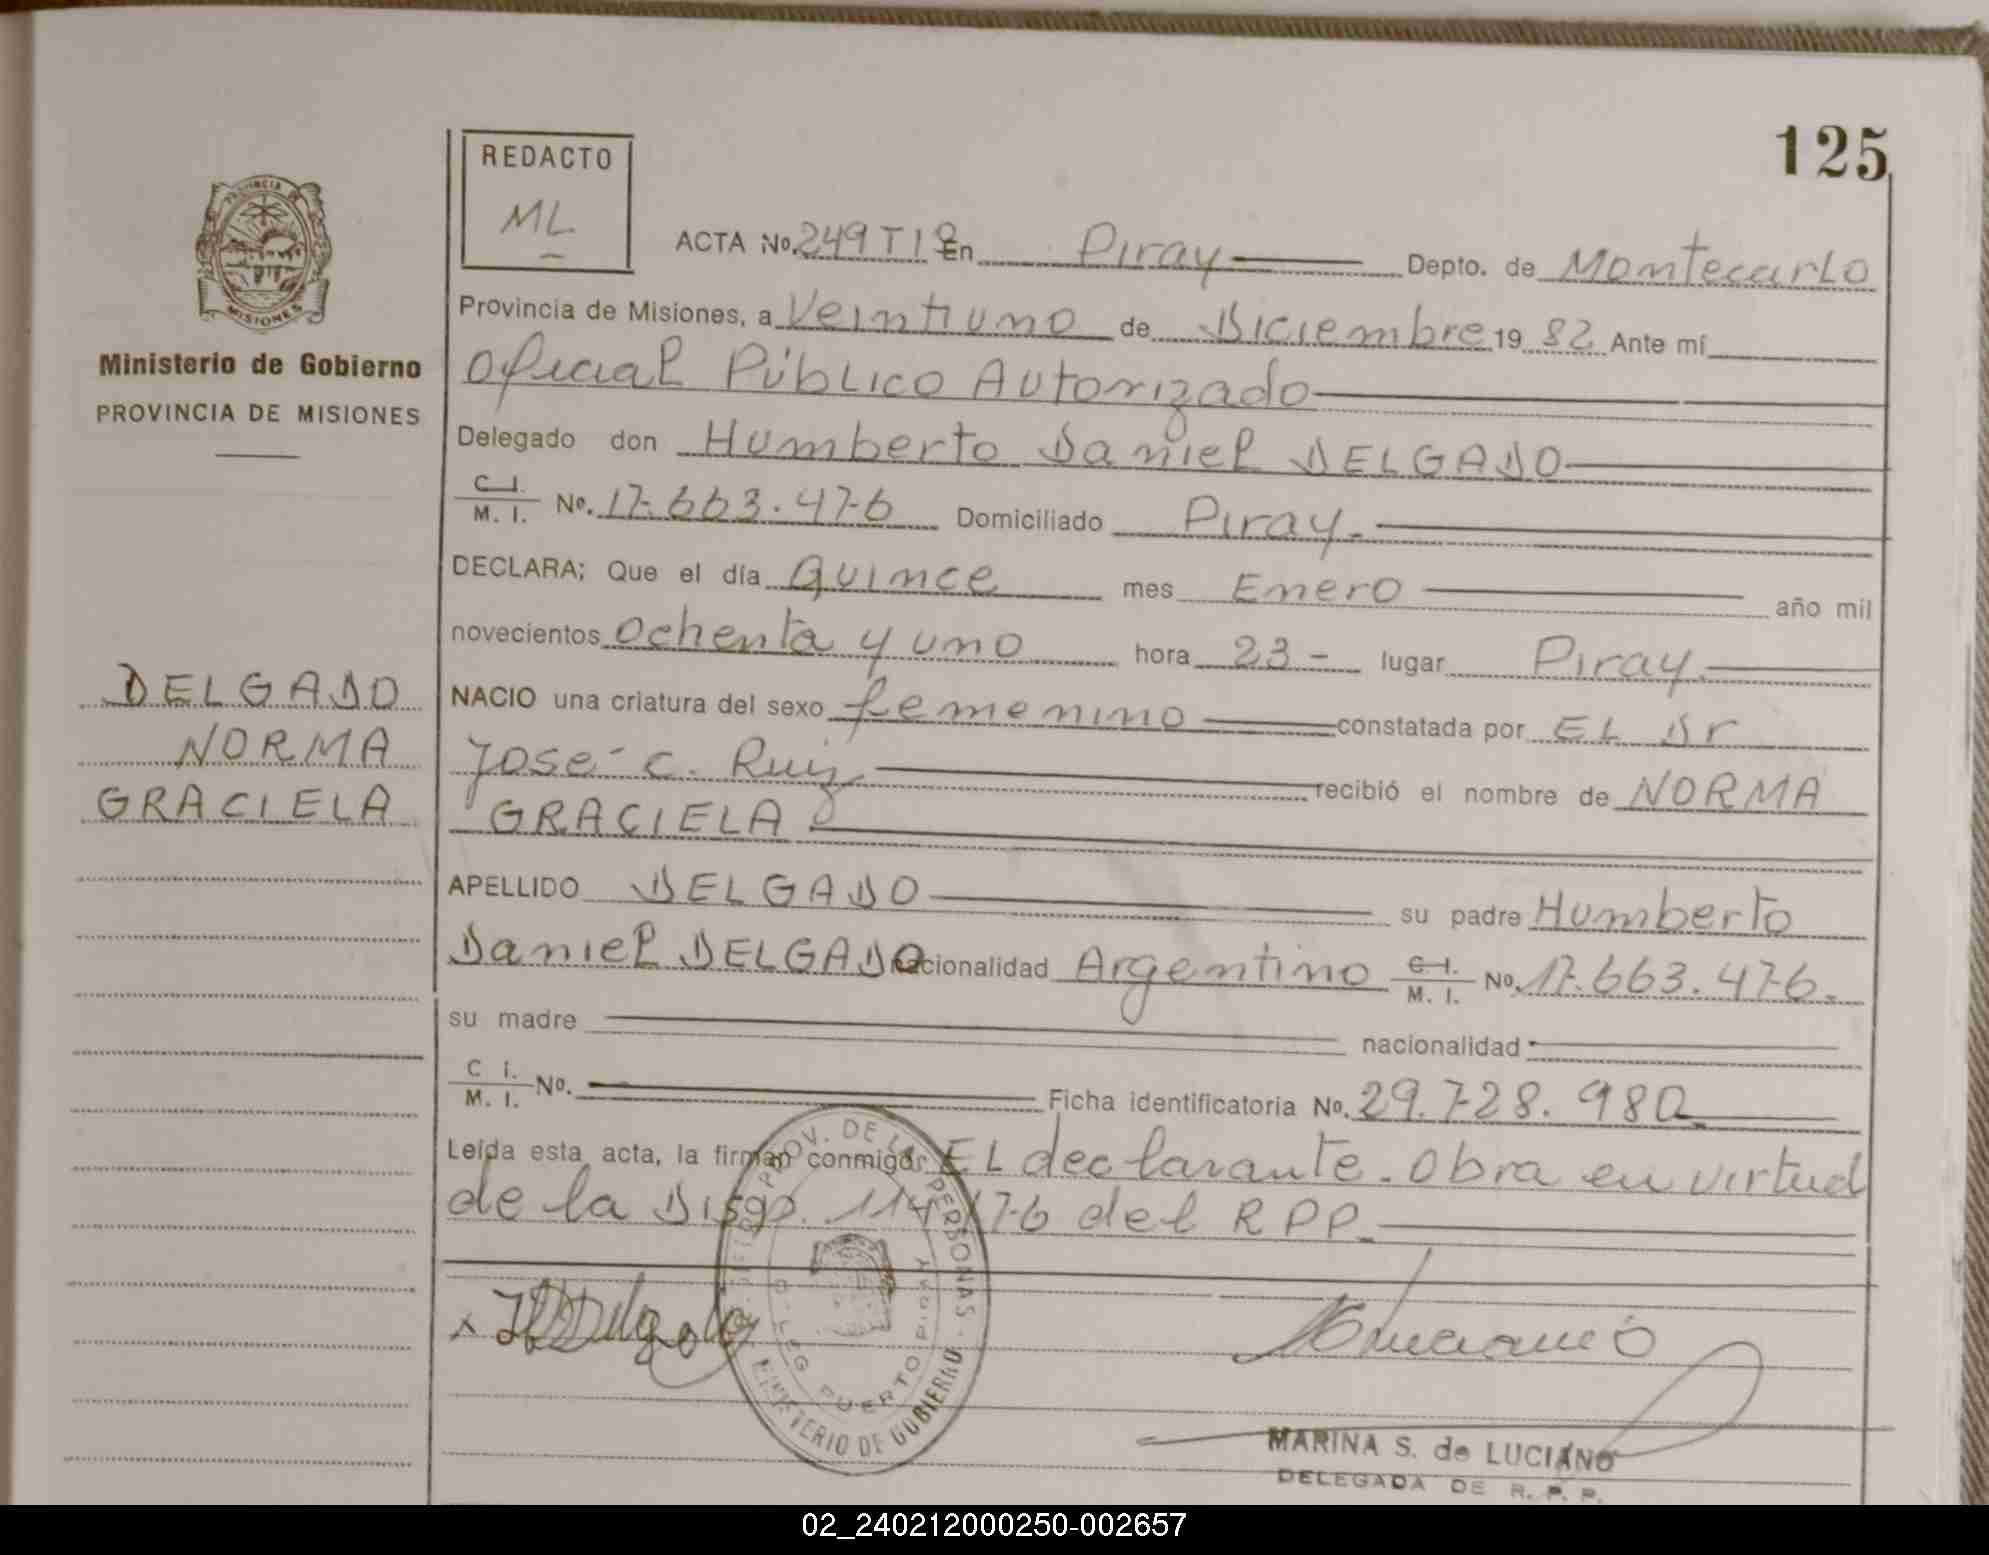 125
REDACTO
ML
PROVINCIA DE
MISIONES
Ministerio de Gobierno
PROVINCIA DE MISIONES
DELGADO
NORMA
GRACIELA
ACTA No. 249 T I º En Piray Depto. de Montecarlo
Provincia de Misiones, a Veintiuno de Diciembre 19 82 Ante mí
Oficial Público Autorizado
Delegado don Humberto Daniel DELGADO
C. I. M. I. No. 17.663.476 Domiciliado Piray.
DECLARA; Que el día Quince mes Enero año mil
novecientos ochenta y uno hora 23 - lugar Piray
NACIO una criatura del sexo femenino constatada por EL Dr
José C. Ruiz recibió el nombre de NORMA
GRACIELA
APELLIDO DELGADO su padre Humberto
Daniel DELGADO nacionalidad Argentino C. I. M. I. No. 17.663.476.
su madre nacionalidad
C I. M. I. No. Ficha identificatoria No. 29.728.980
Leída esta acta, la firman conmigo: EL declarante. Obra en virtud
de la Disp. 114/76 del R P P.
PROV. DE LAS PERSONAS
DELEG PUERTO PIRAY
MINISTERIO DE GOBIERNO
x HDDelgado
MARINA S. de LUCIANO
DELEGADA DE R. P. P.
02_240212000250-002657